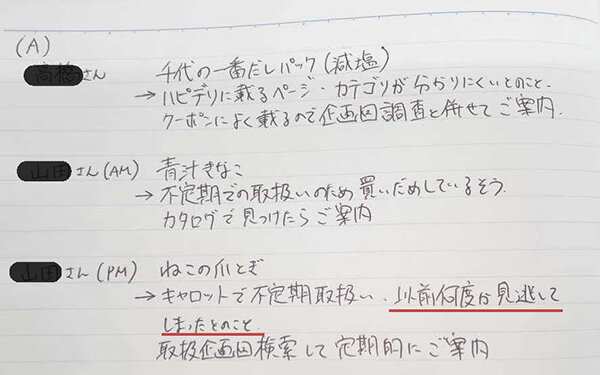 (A)
さん 千代の一番だしパック(減塩)
→ハピデリに載るページ・カテゴリが分かりにくいとのこと.
クーポンによく載るので企画回調査と併せてご案内.
さん(AM) 青汁きなこ
→不定期での取扱いのため買いだめしているそう.
カタログで見つけたらご案内
さん(PM) ねこの爪とぎ
→キャロットで不定期取扱い.以前何度か見逃して
しまったとのこと.
取扱企画回検索して定期的にご案内